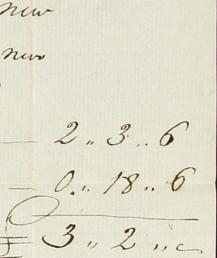 new
new
— 2 „ 3 „ 6
— 0 „ 18 „ 6
3 „ 2 „ 0